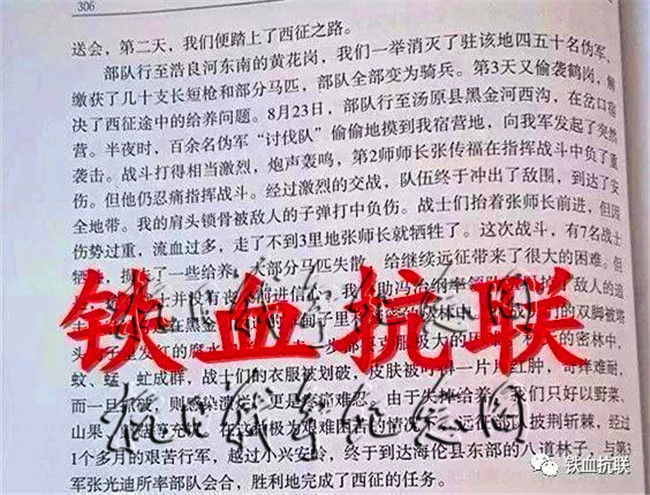 306
送会，第二天，我们便踏上了西征之路。
部队行至浩良河东南的黄花岗，我们一举消灭了驻该地四五十名伪军，
缴获了几十支长短枪和部分马匹，部队全部变为骑兵。第3天又偷袭鹤岗，解
决了西征途中的给养问题。8月23日，部队行至汤原县黑金河西沟，在岔口宿
营。半夜时，百余名伪军“讨伐队”偷偷地摸到我宿营地，向我军发起了突然
袭击。战斗打得相当激烈，炮声轰鸣，第2师师长张传福在指挥战斗中负了重
伤。但他仍忍痛指挥战斗。经过激烈的交战，队伍终于冲出了敌围，到达了安
全地带。我的肩头锁骨被敌人的子弹打中负伤。战士们抬着张师长前进，但因
伤势过重，流血过多，走了不到3里地张师长就牺牲了。这次战斗，有7名战士
了一些给养，大部分马匹失散，给继续远征带来了很大的困难。但
并没有 前进信心。我 助冯治纲率领队 敌人的追
在黑金 甸子里 密林中 们的双脚被塔
头 极大的困 的密林中，
蚊、蠓、虻成群，战士们的衣服被划破，皮肤被 一片片红肿，奇痒难耐，
而一旦 ，则感染溃烂，更是疼痛难忍。由于失掉给养，我们只好以野菜、
山果 充 在这种极为艰难困苦的情况下，远征 披荆斩棘，经过
1个多月的艰苦行军，越过小兴安岭，终于到达海伦县东部的八道林子，与第3
军张光迪所率部队会合，胜利地完成了西征的任务。
铁血抗联
抗日联军纪念园
抗日联军纪念园
铁血抗联